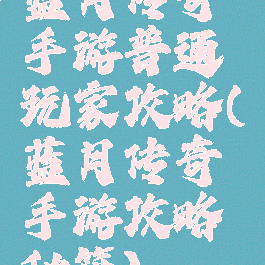 蓝月传奇
手游普通
玩家攻略(
蓝月传奇
手游攻略